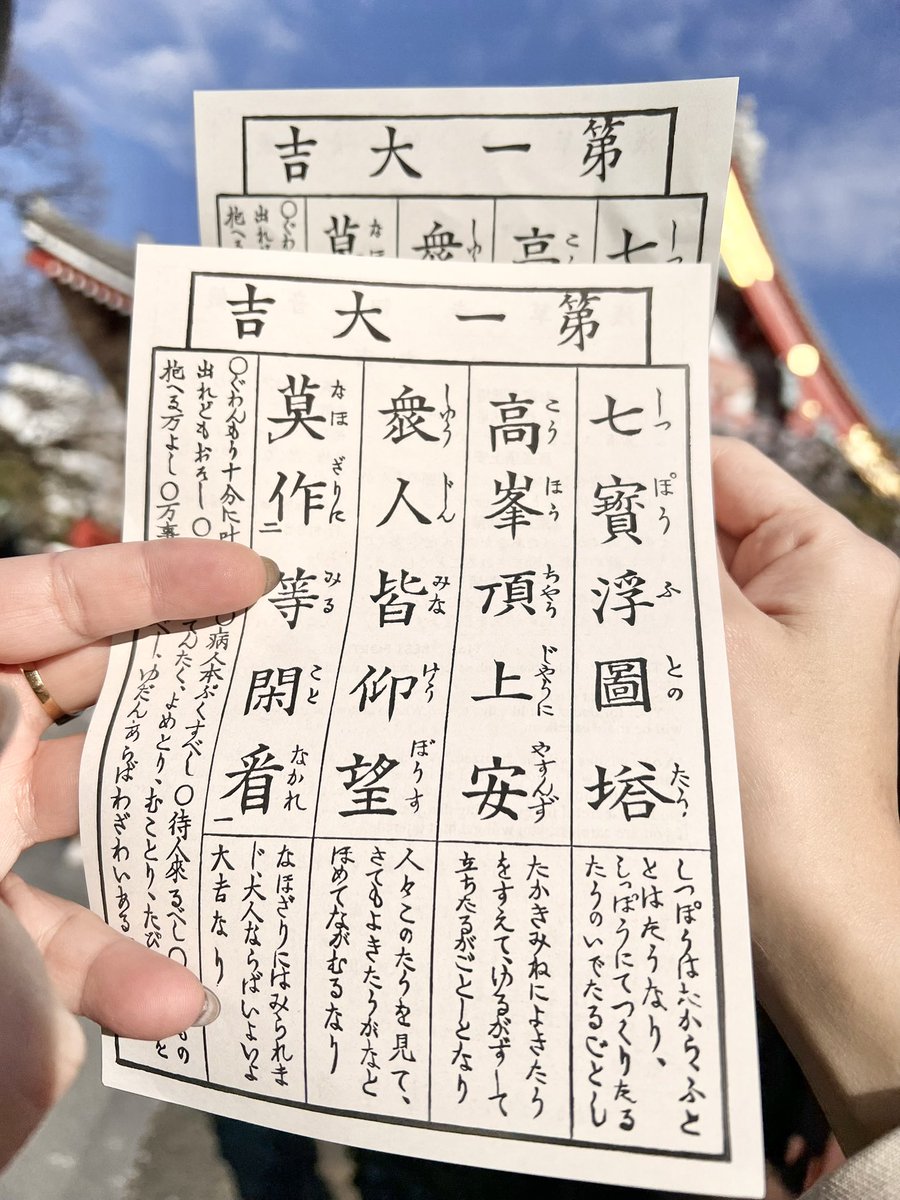 第一大吉
第一大吉
七寶浮圖塔
しつぽうふとのたう
高峯頂上安
こうほうちやうじやうにやすんず
衆人皆仰望
しゆうじんみなけうぼうす
莫作二等閑看一
なほざりにみることなかれ
しつぽうはたから、ふと
とはたうなり、
しつぽうにてつくりたる
たうのいでたるごとし
たかきみねによきたう
をすえて、ゆるがずして
立ちたるがごとしとなり
人々このたうを見て、
さてもよきたうかなと
ほめてながむるなり
なほざりにはみられま
じ、大人ならばいよいよ
大吉なり
〇ぐわんもう十分に叶 〇病人本ぶくすべし 〇待人來るべし 〇 もの
出れどもおそし 〇 てんたく、よめとり、むことり、たび
抱へる万よし 〇万事 し、ゆだんあらばわざわいある